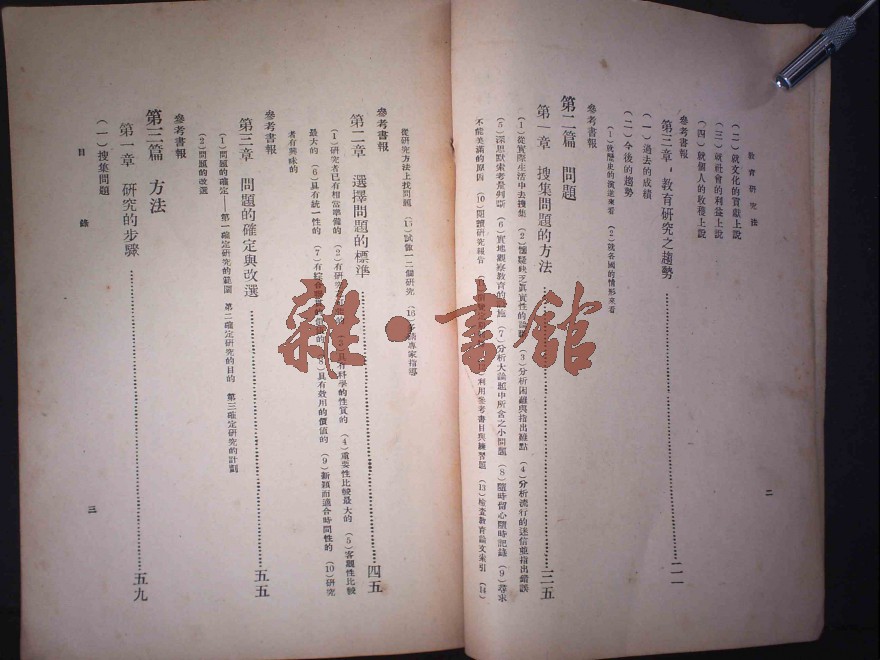 教育研究法
二
（二）就文化的貢獻上說
（三）就社會的利益上說
（四）就個人的收穫上說
參考書報
第三章 教育研究之趨勢 二一
（一）過去的成績
（二）今後的趨勢
（1）就歷史的演進來看 （2）就各國的情形來看
參考書報
第二篇 問題
第一章 搜集問題的方法 三五
（1）從實際生活中去搜集 （2）懷疑缺乏真實性的 （3）分析困難與指出難點 （4）分析流行的迷信並指出錯誤
（5）深思默索考量判斷 （6）實地觀察教育的 施 （7）分析大論題中所含之小問題 （8）隨時留心隨時記錄 （9）尋求
不能美滿的原因 （10）閱讀研究報告 利用參考書目與練習題 （13）檢查教育論文索引 （14）
從研究方法上找問題 （15）試做一二個研究 （16） 專家指導
參考書報
第二章 選擇問題的標準 四五
（1）研究者已有相當準備的 （2）有研究 具有科學的性質的 （4）重要性比較最大的 （5）客觀性比較
最大的 （6）具有統一性的 （7）有綜合 （8）具有效用的價值的 （9）新穎而適合時間性的 （10）研究
者有興味的
參考書報
第三章 問題的確定與改選 五五
（1）問題的確定——第一確定研究的範圍 第二確定研究的目的 第三確定研究的計劃
（2）問題的改選
參考書報
第三篇 方法
第一章 研究的步驟 五九
（一）搜集問題
目錄
三
雜·書館